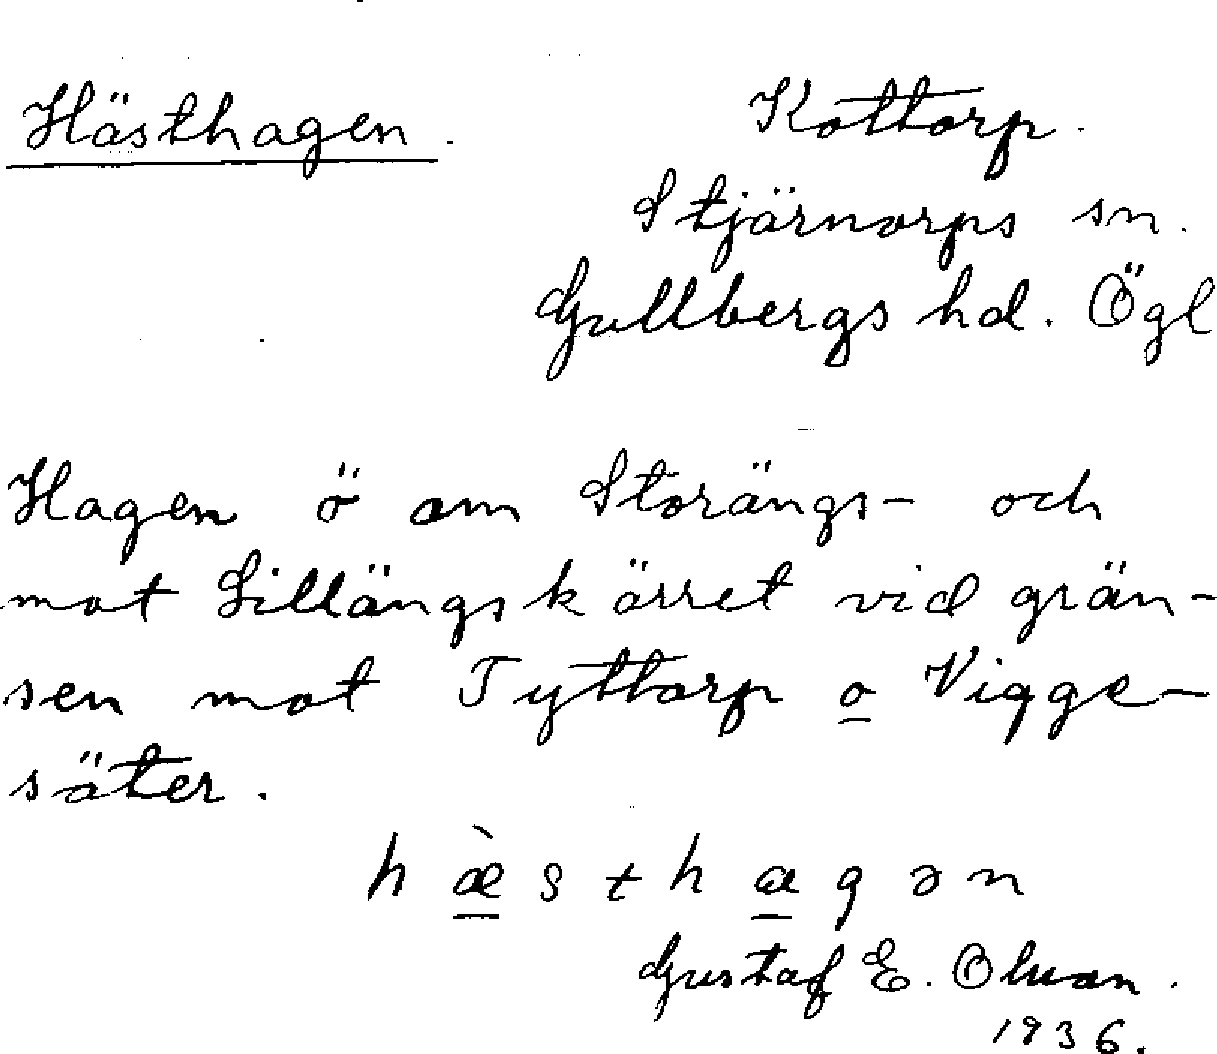 Hästhagen.
Kottorp.
Stjärnorps sn.
Gullbergs hd. Ögl
Hagen ö om Storängs- och
mot Lillängskärret vid grän-
sen mot Tyttorp o Vigge-
säter.
hæ̀sthagən
Gustaf E. Olson.
1936.